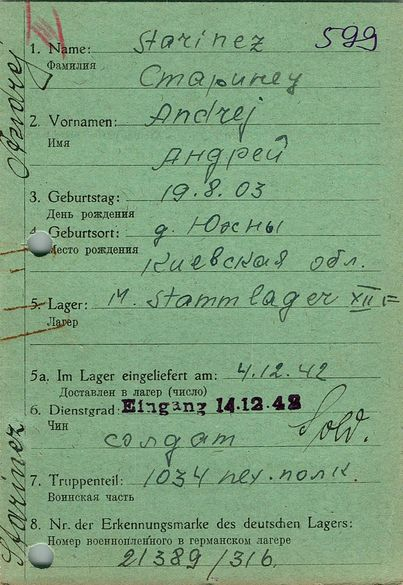 599
1. Name: Starinez
Фамилия Старинец
2. Vornamen: Andrej
Имя Андрей
3. Geburtstag: 19.8.03
День рождения
4. Geburtsort: д. Южны
Место рождения Киевская обл.
5. Lager: M. Stammlager XII F
Лагер
5a. Im Lager eingeliefert am: 4.12.42
Доставлен в лагер (число)
6. Dienstgrad: Eingang 14.12.42
Чин солдат Sold.
7. Truppenteil: 1034 пех. полк.
Воинская часть
8. Nr. der Erkennungsmarke des deutschen Lagers:
Номер военнопленного в германском лагере
21389/316
Starinez
Andrej